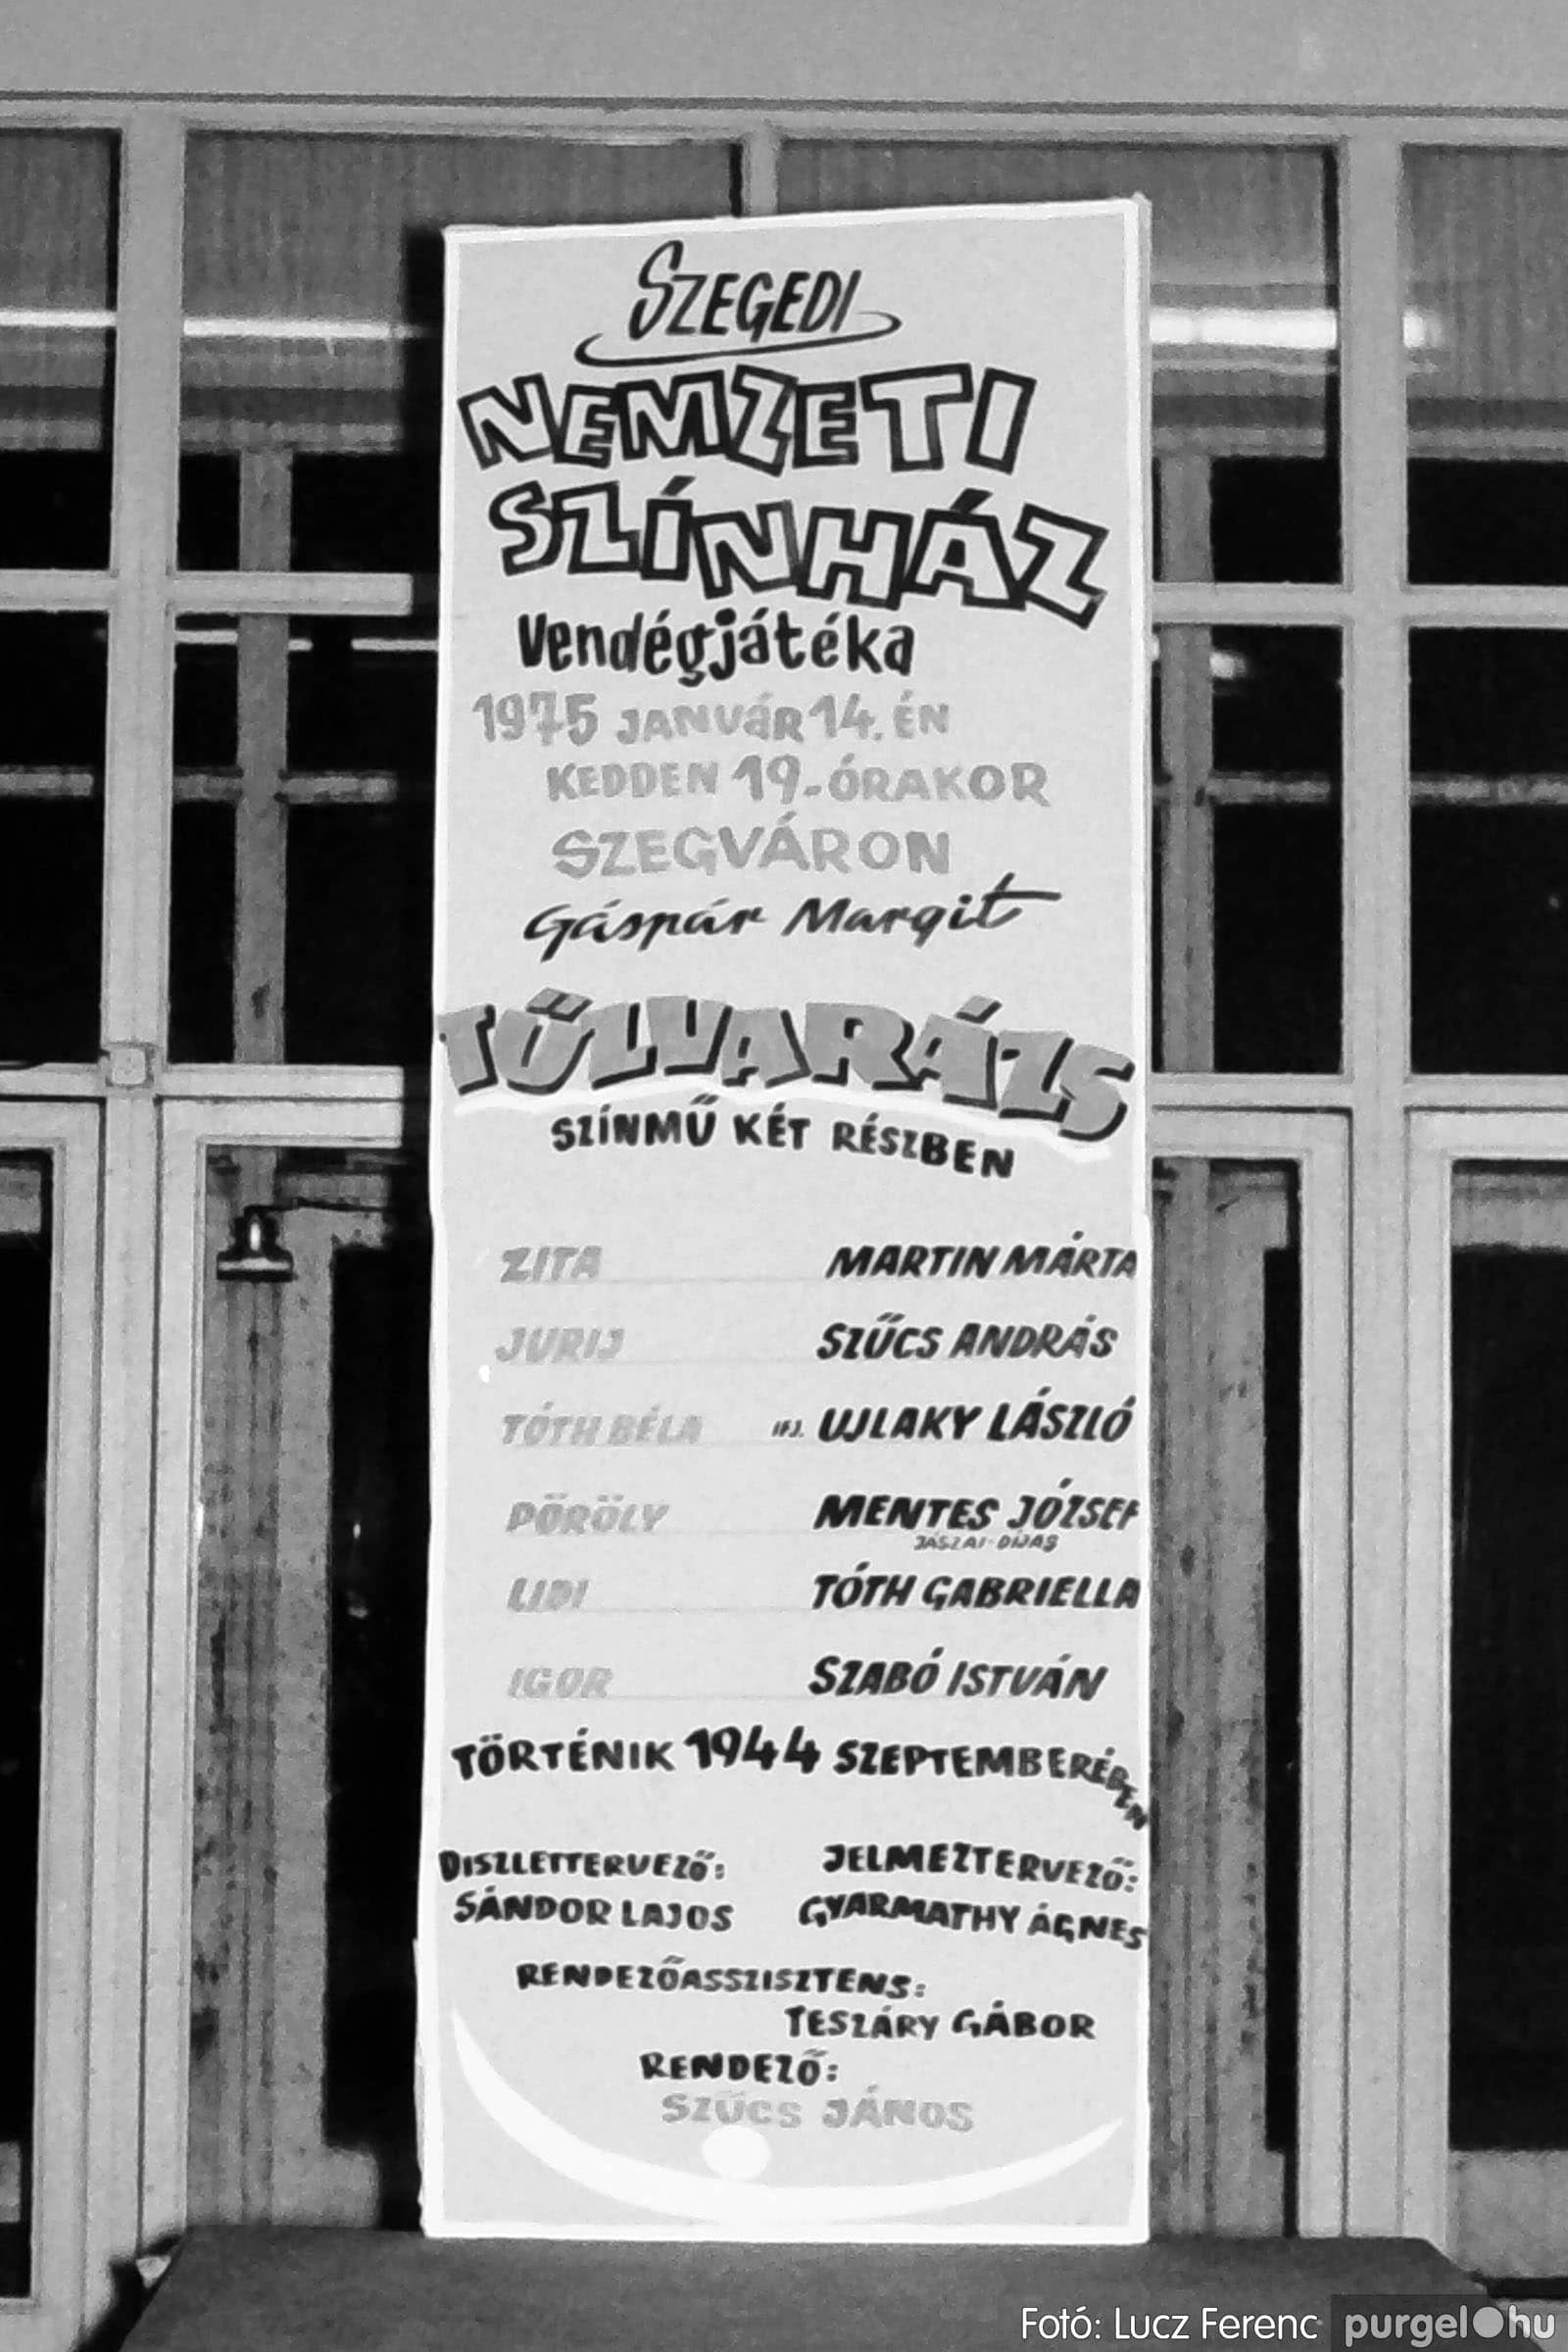 SZEGEDI
NEMZETI
SZÍNHÁZ
Vendégjátéka
1975 JANUÁR 14. ÉN
KEDDEN 19-ÓRAKOR
SZEGVÁRON
Gáspár Margit
TŰZVARÁZS
SZÍNMŰ KÉT RÉSZBEN
ZITA MARTIN MÁRTA
JURIJ SZŰCS ANDRÁS
TÓTH BÉLA IFJ. UJLAKY LÁSZLÓ
PÖRÖLY MENTES JÓZSEF
JÁSZAI-DIJAS
LIDI TÓTH GABRIELLA
IGOR SZABÓ ISTVÁN
TÖRTÉNIK 1944 SZEPTEMBERÉBEN
DISZLETTERVEZŐ: JELMEZTERVEZŐ:
SÁNDOR LAJOS GYARMATHY ÁGNES
RENDEZŐASSZISZTENS:
TESZÁRY GÁBOR
RENDEZŐ:
SZŰCS JÁNOS
Fotó: Lucz Ferenc purgel.hu